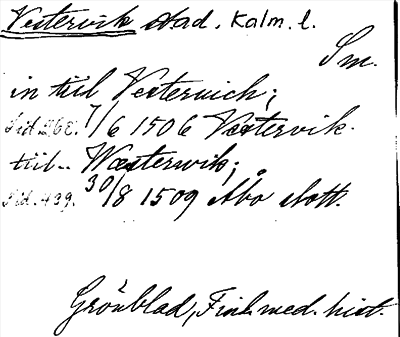 Vestervik stad. Kalm. l.
Sm.
in till Vesterwich;
Sid 268. 7/6 1506 Vestervik.
till Westerwik;
Sid. 439. 30/8 1509 Åbo slott.
Grönblad, Finl. med. hist.